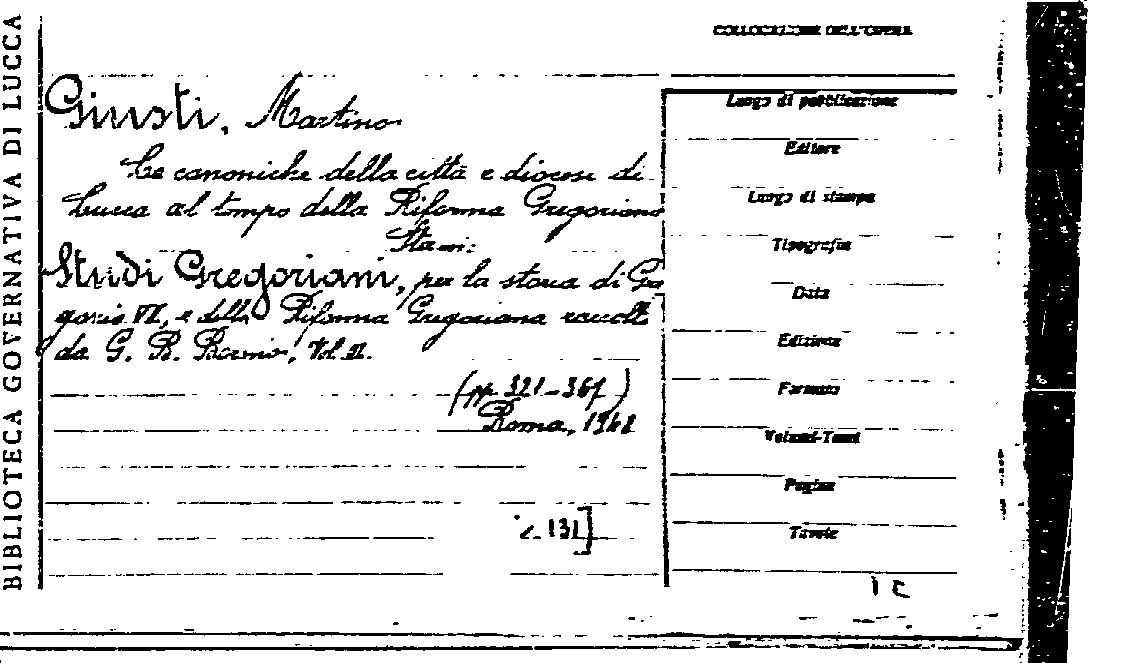 BIBLIOTECA GOVERNATIVA DI LUCCA
COLLOCAZIONE DELL'OPERA
Giusti, Martino
Le canoniche della città e diocesi di
Lucca al tempo della Riforma Gregoriana
Studi Gregoriani, per la storia di Gre
gorio VII, e della Riforma Gregoriana raccolti
da G. B. Borino, Vol. III.
(pp. 321-367)
Roma, 1948
131]
Luogo di pubblicazione
Editore
Luogo di stampa
Tipografia
Data
Edizione
Formato
Volumi-Tomi
Pagine
Tavole